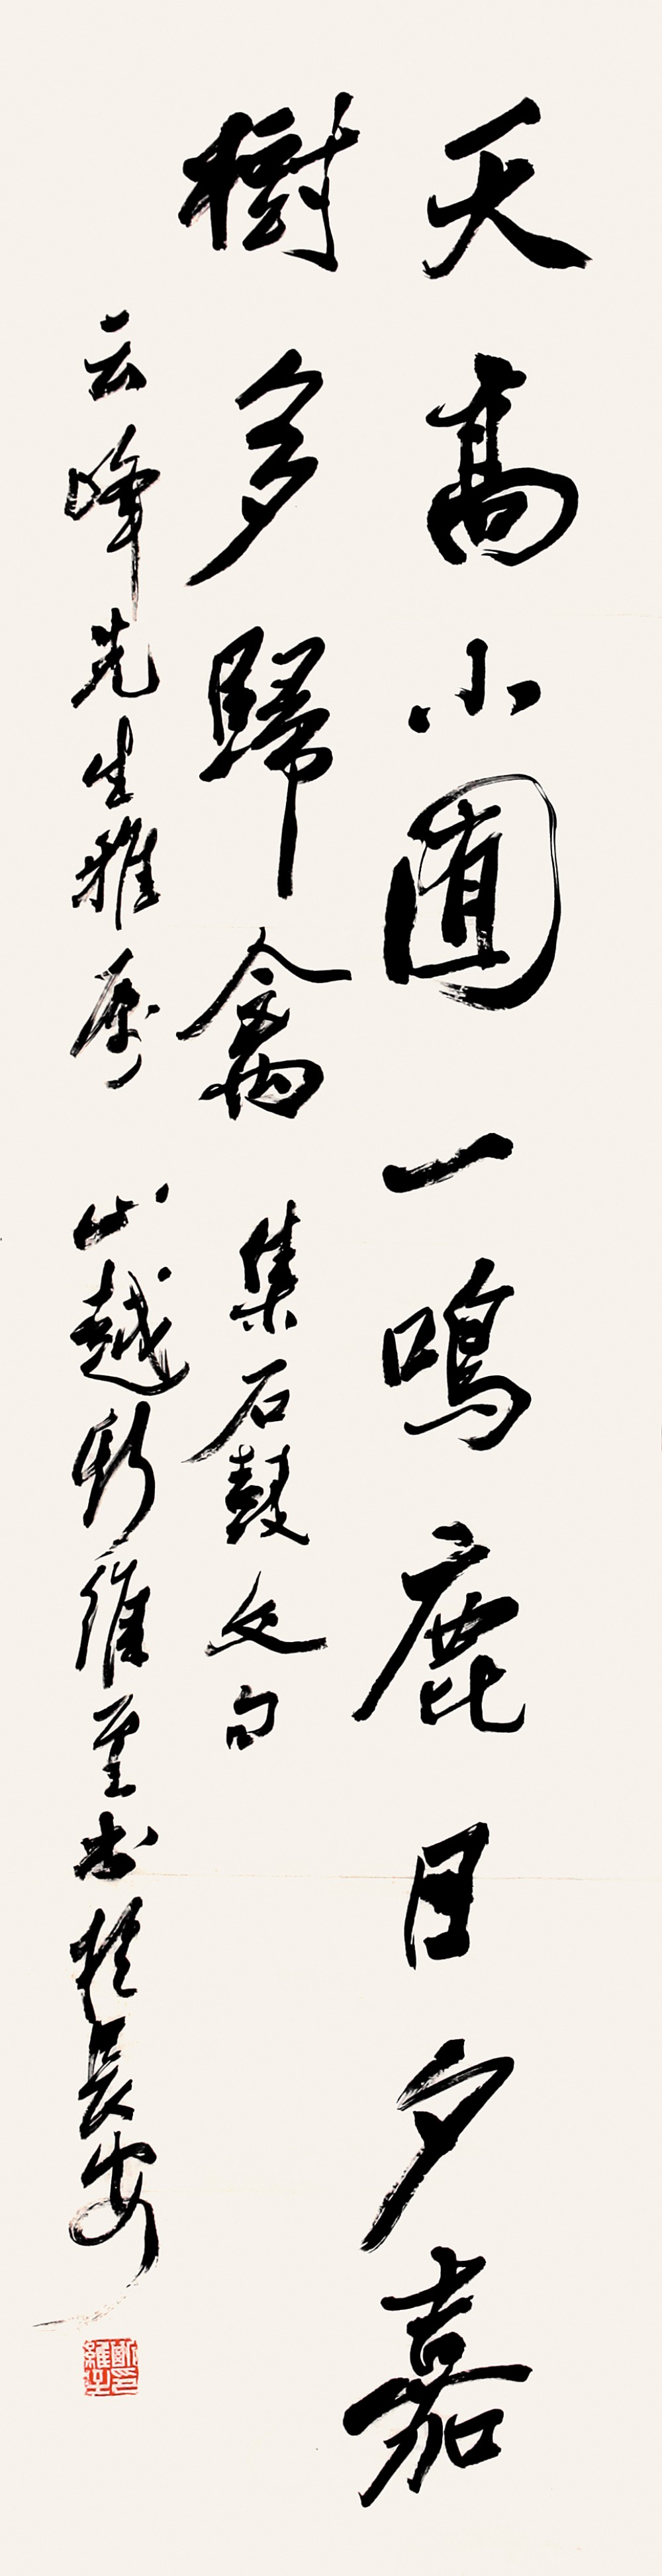 天高小圃一鸣鹿日夕嘉
樹多歸禽 集石鼓文句
云峰先生雅属 山越靳維至書於長安